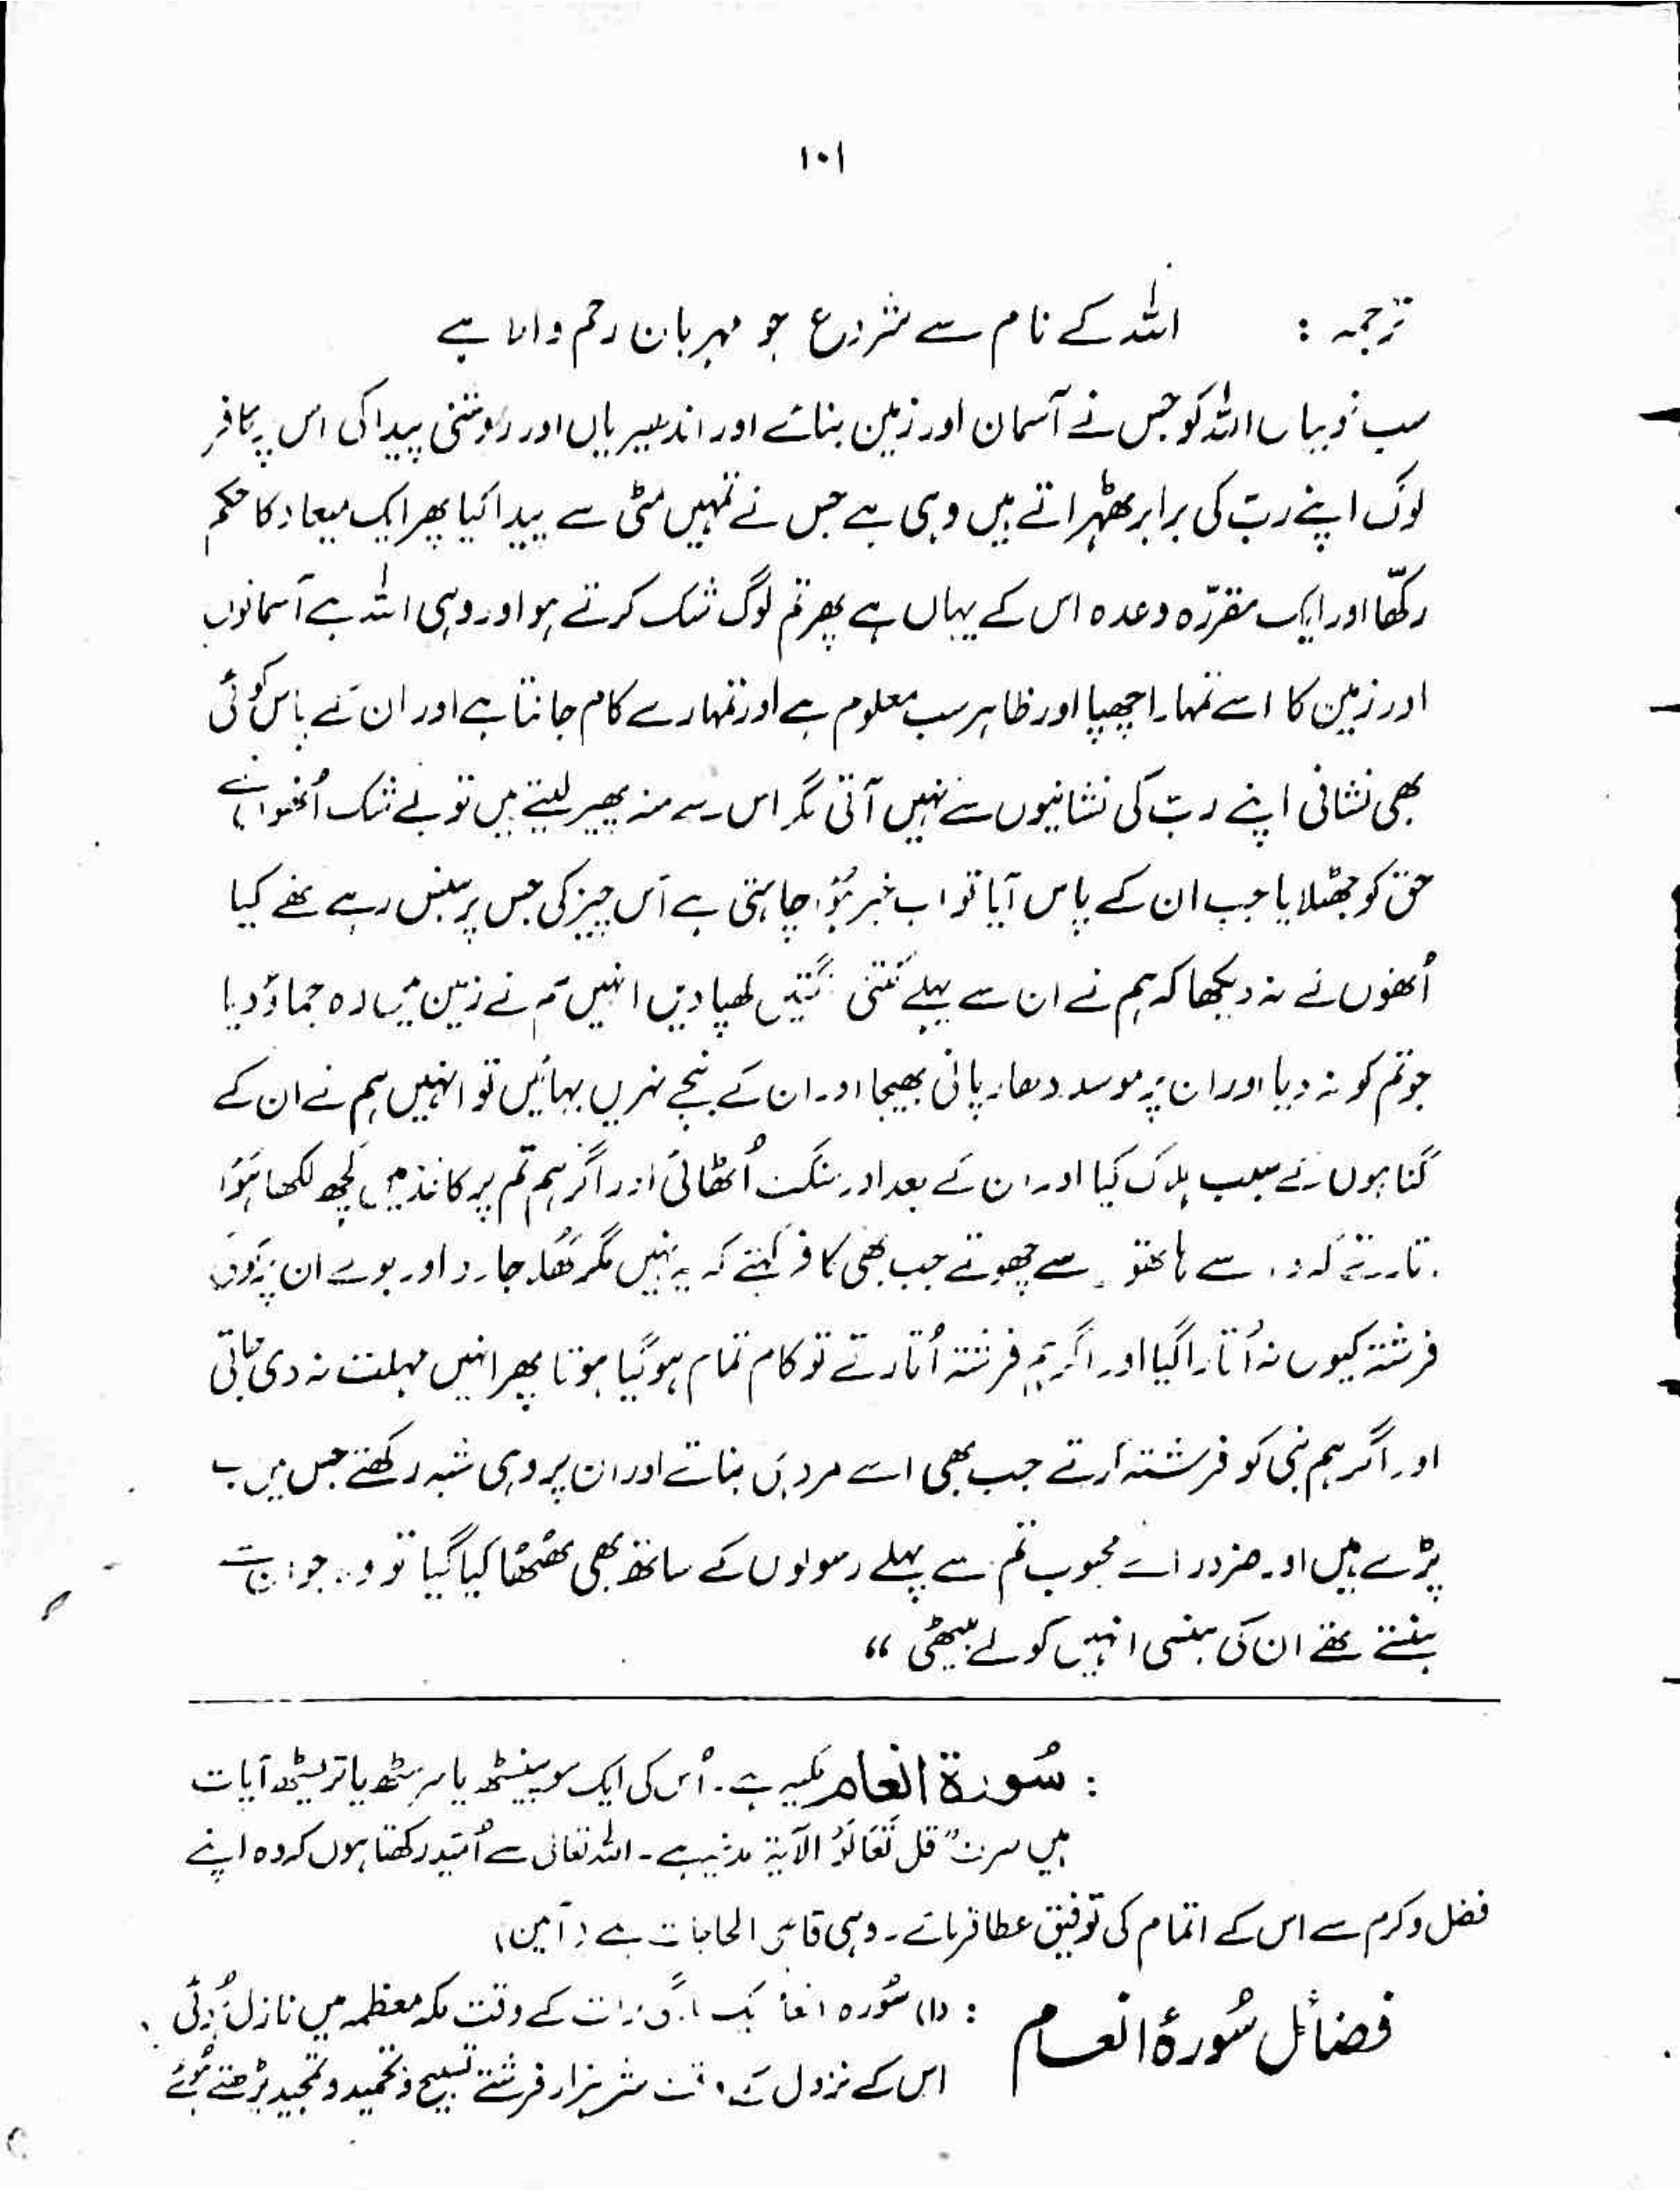 ۱۰۱
ترجمہ : اللہ کے نام سے شروع جو مہربان رحم والا ہے
سب خوبیاں اللہ کو جس نے آسمان اور زمین بنائے اور اندھیریاں اور روشنی پیدا کی اس پر کافر
لوگ اپنے ربّ کی برابر ٹھہراتے ہیں وہی ہے جس نے تمہیں مٹی سے پیدا کیا پھر ایک میعاد کا حکم
رکھّا اور ایک مقررّہ وعدہ اس کے یہاں ہے پھر تم لوگ شک کرتے ہو اور وہی اللہ ہے آسمانوں
اور زمین کا اسے تمہارا چھپا اور ظاہر سب معلوم ہے اور تمہارے کام جانتا ہے اور ان کے پاس کوئی
بھی نشانی اپنے ربّ کی نشانیوں سے نہیں آتی مگر اس سے منہ پھیر لیتے ہیں تو بے شک اُنھوں نے
حق کو جھٹلایا جب ان کے پاس آیا تو اب خبر ہُوا چاہتی ہے اس چیز کی جس پر ہنس رہے تھے کیا
اُنھوں نے نہ دیکھا کہ ہم نے ان سے پہلے کتنی سنگتیں کھپا دیں انہیں ہم نے زمین میں وہ جماؤ دیا
جو تم کو نہ دیا اور ان پر موسلا دھار پانی بھیجا اور ان کے نیچے نہریں بہائیں تو انہیں ہم نے ان کے
گناہوں کے سبب ہلاک کیا اور ان کے بعد اور سنگت اُٹھائی اور اگر ہم تم پر کاغذ میں کچھ لکھا ہُوا
اتارتے کہ وہ اسے ہاتھوں سے چھوتے جب بھی کافر کہتے کہ یہ نہیں مگر کھُلا جادو اور بولے ان پر کوئی
فرشتہ کیوں نہ اُتارا گیا اور اگر ہم فرشتہ اُتارتے تو کام تمام ہو گیا ہوتا پھر انہیں مہلت نہ دی جاتی
اور اگر ہم نبی کو فرشتہ کرتے جب بھی اسے مرد ہی بناتے اور ان پر وہی شبہ رکھتے جس میں اب
پڑے ہیں اور ضرور اے محبوب تم سے پہلے رسولوں کے ساتھ بھی ٹھٹھا کیا گیا تو وہ جو ان سے
ہنستے تھے ان کی ہنسی انہیں کو لے بیٹھی “
: سُورۃ انعام مکیہ ہے۔ اُس کی ایک سو پینسٹھ یا سرسٹھ یا تریسٹھ آیات
ہیں صرف ”قل تَعَالَوْ الآیۃ مدنیہ ہے۔ اللہ تعالیٰ سے اُمید رکھتا ہوں کہ وہ اپنے
فضل و کرم سے اس کے اتمام کی توفیق عطا فرمائے۔ وہی قاضی الحاجات ہے (آمین)
فضائل سُورۂ انعام : (۱) سُورہ انعام رات کے وقت مکہ معظمہ میں نازل ہُوئی
اس کے نزول کے وقت ستر ہزار فرشتے تسبیح و تحمید و تمجید پڑھتے ہُوئے